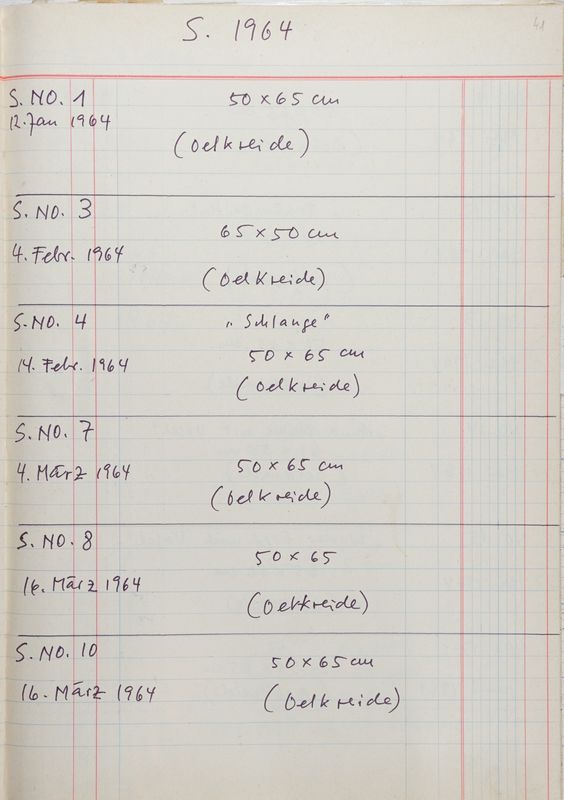 S. 1964
41
S. NO. 1
50 x 65 cm
12. Jan 1964
(Oelkreide)
S. NO. 3
65 x 50 cm
4. Febr. 1964
(Oelkreide)
S. NO. 4
„Schlange"
50 x 65 cm
14. Febr. 1964
(Oelkreide)
S. NO. 7
50 x 65 cm
4. März 1964
(Oelkreide)
S. NO. 8
50 x 65
16. März 1964
(Oelkreide)
S. NO. 10
50 x 65 cm
16. März 1964
(Oelkreide)